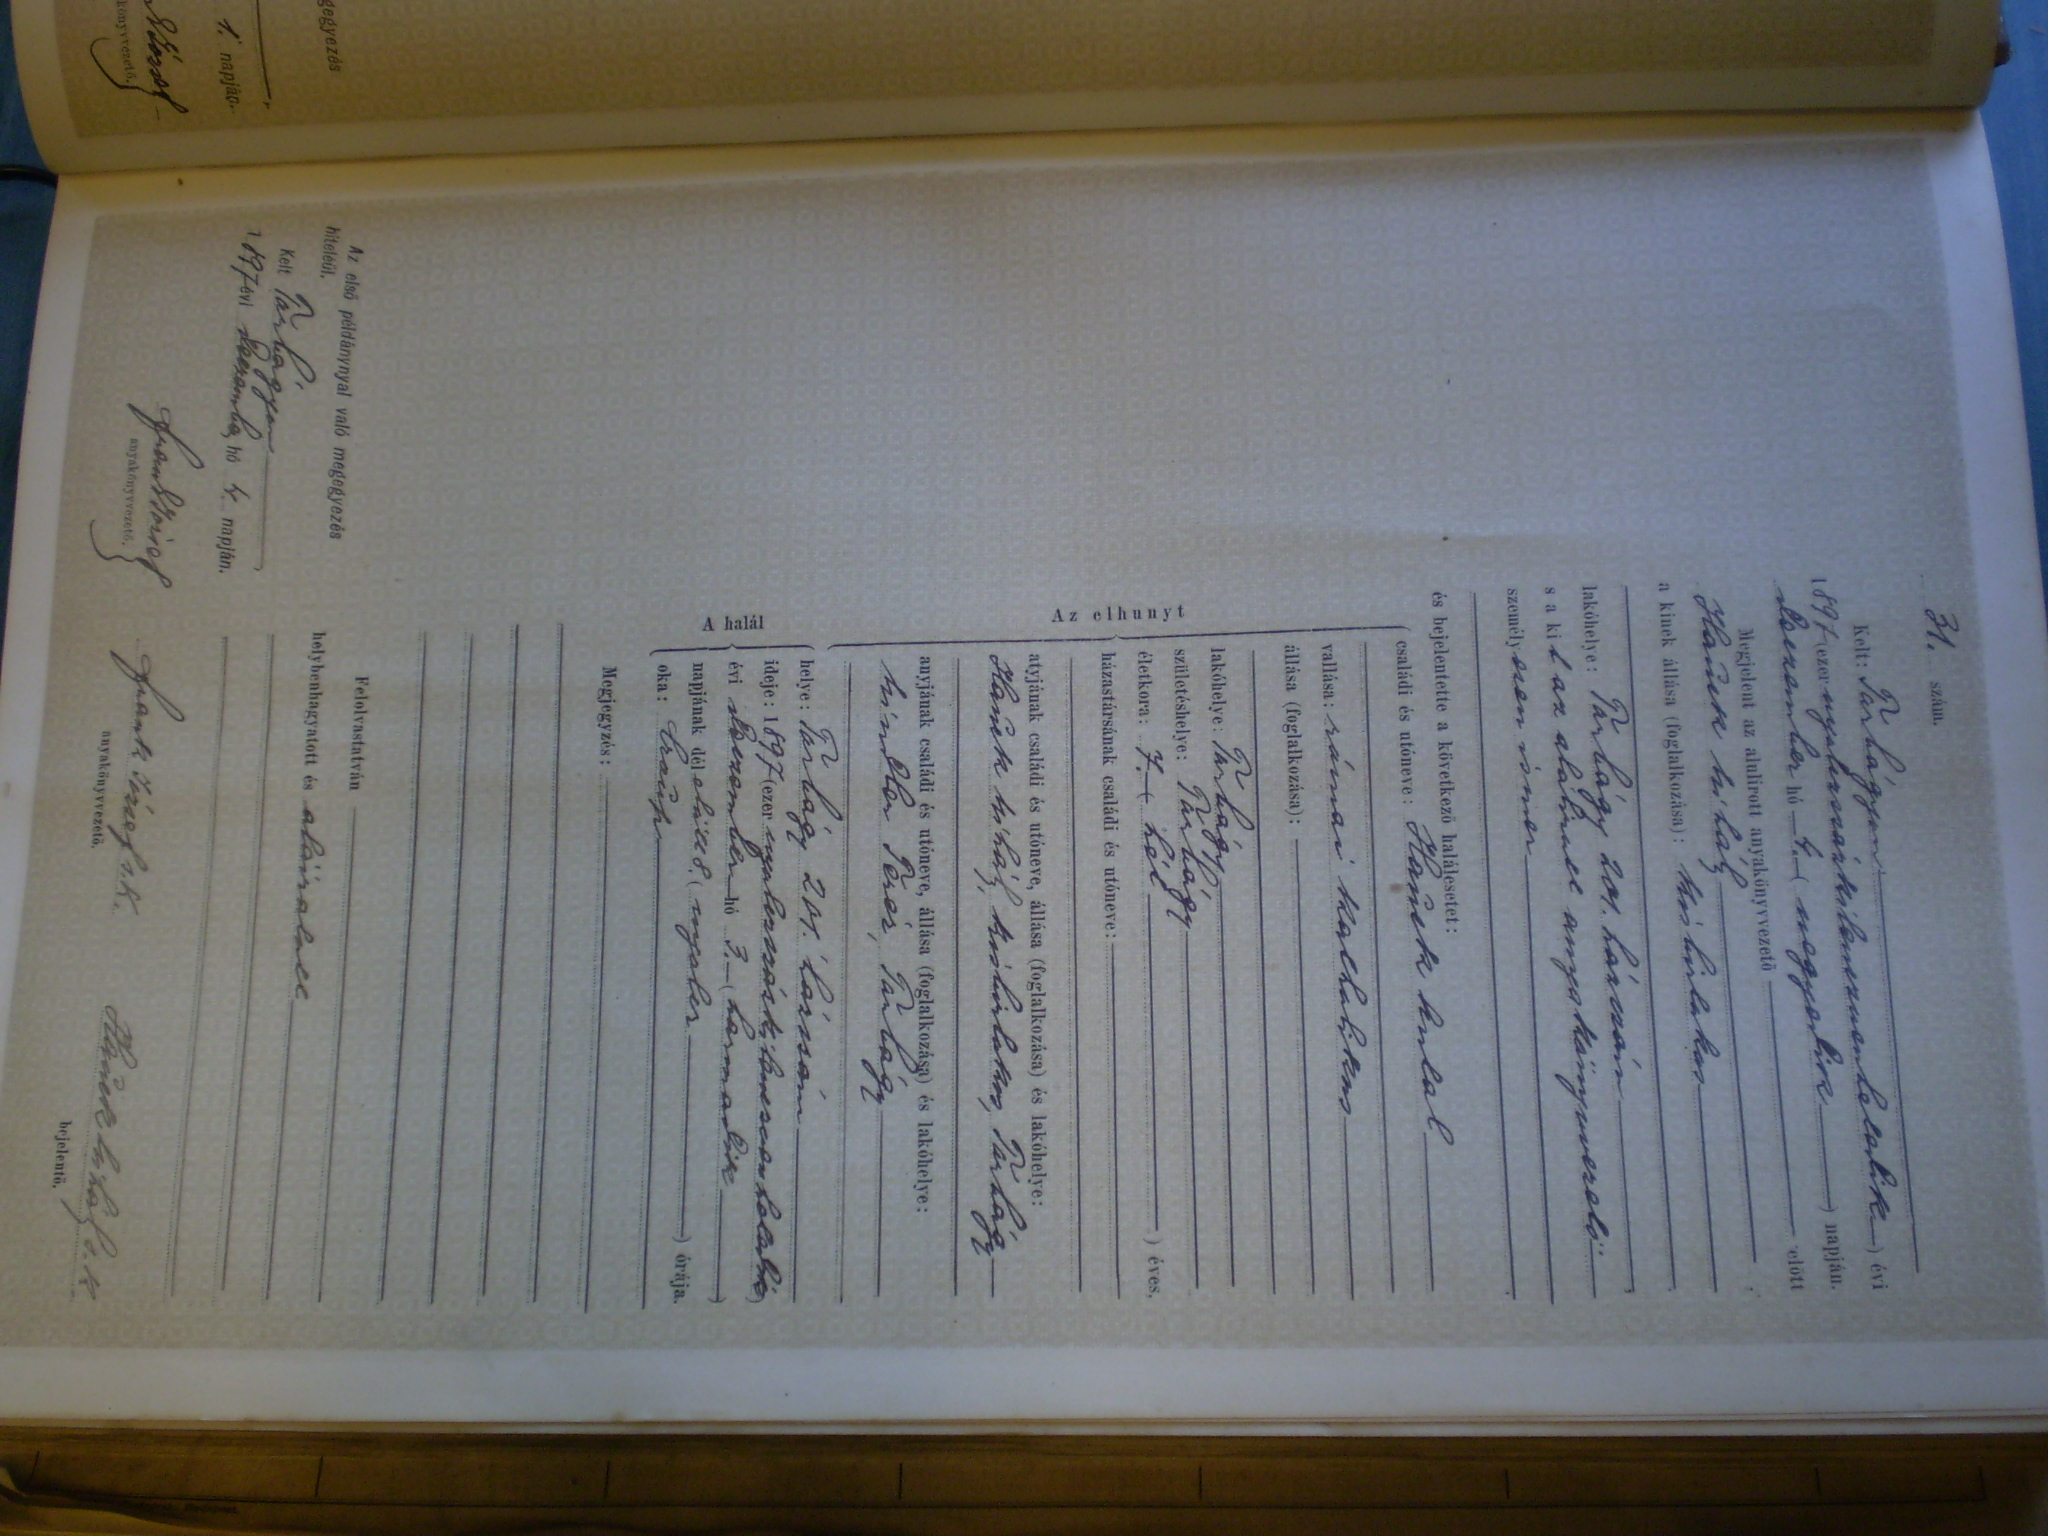 31. szám.
Kelt: Tarhágyon
1897 (ezer nyolczszázkilenczvenhetedik) évi
deczember hó 4. (negyedik) napján.
Megjelent az alulirott anyakönyvvezető előtt
Hauck Mihály
a kinek állása (foglalkozása):
lakóhelye: Tarhágy 201. házszám
s a ki t az alólirt anyakönyvvezető
személyesen ismer
és bejelentette a következő halálesetet:
Az elhunyt
családi és utóneve: Hauck
vallása: római katholikus
állása (foglalkozása):
lakóhelye: Tarhágy
születéshelye: Tarhágy
életkora: 7. ( hét ) éves.
házastársának családi és utóneve:
atyjának családi és utóneve, állása (foglalkozása) és lakóhelye:
Hauck Mihály, Tarhágy
anyjának családi és utóneve, állása (foglalkozása) és lakóhelye:
Teréz, Tarhágy
A halál
helye: Tarhágy 201. házszám
ideje: 1897 (ezer nyolczszázkilenczvenhetedik)
évi deczember hó 3. (harmadik)
napjának délelőtti 8. (nyolcz) órája.
oka: Croup
Megjegyzés:
Felolvastatván
helybenhagyatott és aláiratott
Frank József s.k.
anyakönyvvezető.
Hauck Mihály s.k.
bejelentő.
Az első példánynyal való megegyezés
hiteléül.
Kelt Tarhágyon
1897 évi deczember hó 4. napján.
Frank József
anyakönyvvezető.
egegyezés
1. napján.
József
könyvvezető.